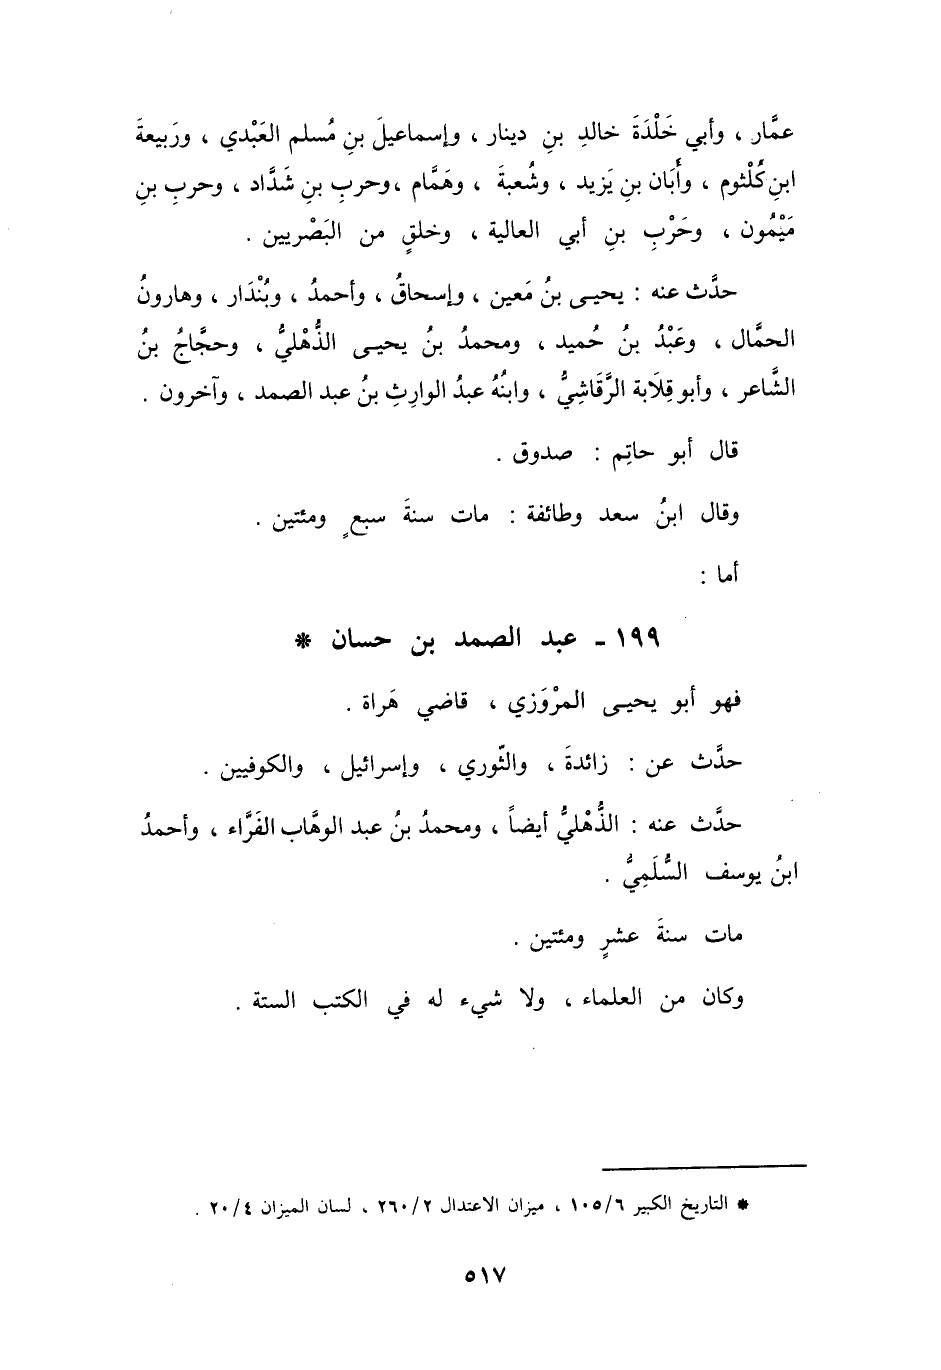 عمَّار ، وأبي خَلْدَةَ خالدِ بنِ دينار ، وإسماعيلَ بنِ مُسلم العَبْدي ، ورَبيعةَ
ابنِ كُلْثوم ، وأَبَان بنِ يَزيد ، وشُعبةَ ، وهَمَّام ، وحربِ بنِ شَدَّاد ، وحربِ بنِ
مَيْمُون ، وحَرْبِ بنِ أبي العالية ، وخلقٍ من البَصْريين .
حدَّث عنه : يحيـى بنُ مَعين ، وإسحاقُ ، وأحمدُ ، وبُنْدَار ، وهارونُ
الحمَّال ، وعَبْدُ بنُ حُميد ، ومحمدُ بنُ يحيـى الذُّهْليُّ ، وحجَّاجُ بنُ
الشَّاعر ، وأبو قِلَابة الرَّقَاشِيُّ ، وابنُهُ عبدُ الوارِثِ بنُ عبد الصمد ، وآخرون .
قال أبو حاتِم : صدوق .
وقال ابنُ سعد وطائفة : مات سنةَ سبعٍ ومئتين .
أما :
١٩٩ - عبد الصمد بن حسان *
فهو أبو يحيـى المرْوَزي ، قاضي هَراة .
حدَّث عن : زائدةَ ، والثّوري ، وإسرائيل ، والكوفيين .
حدَّث عنه : الذُّهْليُّ أيضاً ، ومحمدُ بنُ عبد الوهَّاب الفَرَّاء ، وأحمدُ
ابنُ يوسف السُّلَمِيُّ .
مات سنةَ عشرٍ ومئتين .
وكان من العلماء ، ولا شيء له في الكتب الستة .
* التاريخ الكبير ١٠٥/٦ ، ميزان الاعتدال ٢٦٠/٢ ، لسان الميزان ٢٠/٤ .
٥١٧